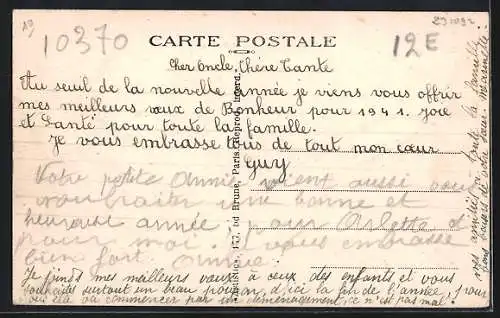 10370
CARTE POSTALE
12E
Cher Oncle, Chère Tante
Au seuil de la nouvelle année je viens vous offrir
mes meilleurs vœux de Bonheur pour 1941. Joie
et Santé pour toute la famille.
Je vous embrasse tous de tout mon cœur
Guy
Votre petite Annie vient aussi vous
souhaiter une bonne et
heureuse année, pour Arlette et
pour moi. Je vous embrasse
bien fort. Annie.
Je joins mes meilleurs vœux à ceux des enfants et vous
souhaite surtout un beau d'ici la fin de l'année, pour
cela commencer par un déménagement, ce n'est pas mal!
amitiés à toute la famille
bons baisers de votre sœur. Marinette